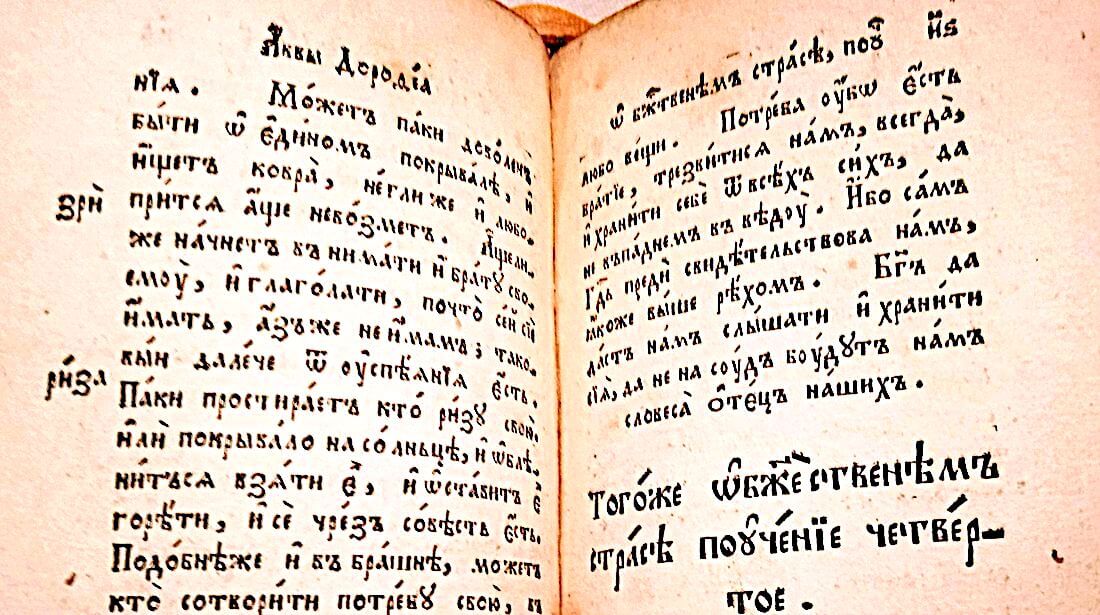 А҆́ввы Дороѳе́а
нїѧ. Мо́жетъ па́ки дово́ленъ
бы́ти ѡ҆ є҆ди́номъ покрыва́лѣ, и҆
и҆́щетъ ковра̀, не́гли же и҆ любо-
зрѝ
при́тсѧ а҆́ще не во́зметъ. А҆́щели
же на́чнетъ вънима́ти и҆ бра́тꙋ сво-
емоу̀, и҆ глаго́лати, почто̀ се́й
и҆́мать, а҆́зъ же не и҆́мамъ; тако-
вы́и дале́че ѿ оу҆спѣ́ѧнїѧ є҆́сть.
ри́за
Па́ки простира́етъ кто̀ ри́зꙋ свою̀.
и҆лѝ покрыва́ло на со́лньцѣ, и҆ ѡ҆блѣ-
ни́тьсѧ взѧ́ти є҆̀, и҆ ѡ҆ста́витъ є҆̀
горѣ́ти, и҆ сѐ чре́зъ со́вѣсть є҆́сть.
Подо́бнѣже и҆ въ бра́шнѣ, мо́жетъ
кто̀ сотвори́ти потре́бꙋ свою̀, въ
ѡ҆ бж҃твенѣмъ стра́сѣ, поꙋ҃ н҃ѕ
любо ве́щи. Потре́ба оу҆́бѡ є҆́сть
бра́тїе, трезви́тисѧ на́мъ, всегда̀,
и҆ храни́ти себѐ ѿ всѣ́хъ си́хъ, да
не въпа́днемъ въ бѣ́доу. И҆́бо са́мъ
Гд҃ь предѝ свидѣ́тельствова на́мъ,
ꙗ҆́коже вы́ше рѣ́хомъ. Бг҃ъ да
да́стъ на́мъ слы́шати и҆ храни́ти
сїѧ̀, да не на соу́дъ боу́дутъ на́мъ
словеса̀ ѻ҆те́цъ на́шихъ.
тогѡ́же ѡ҆ бж҃е́ственѣмъ
стра́сѣ поꙋче́нїе четве́р-
тое.